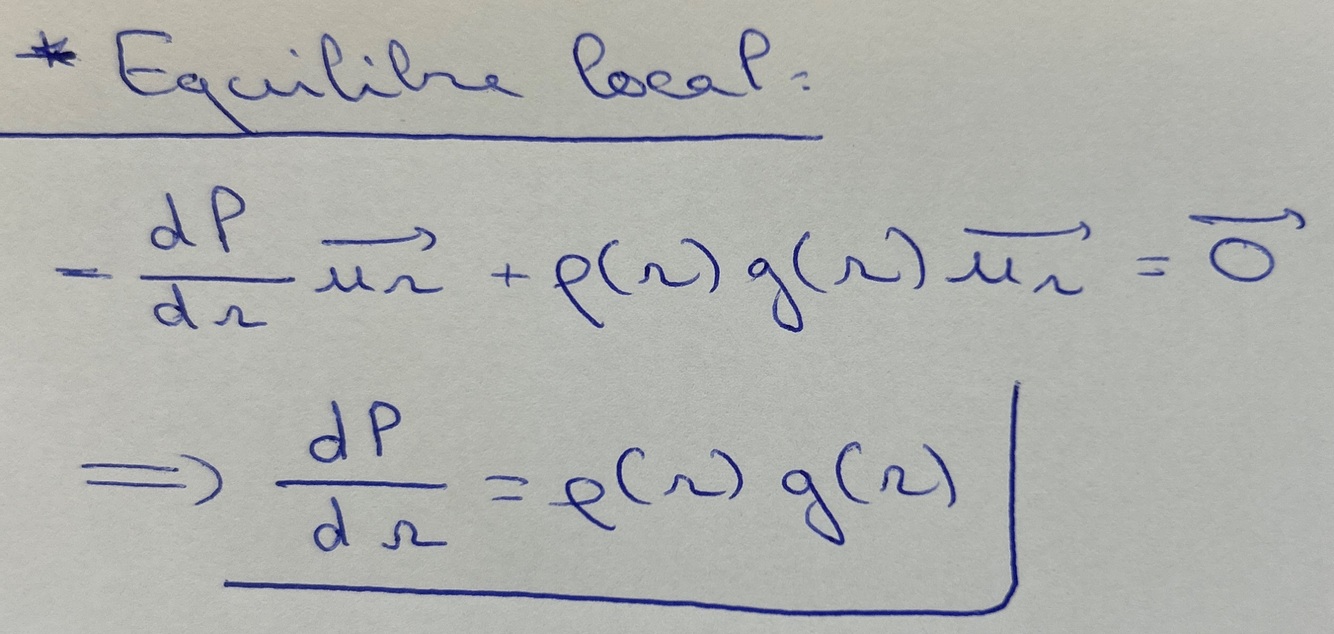 * Equilibre local :
- dP/dr u⃗r + ρ(r) g(r) u⃗r = 0⃗
⟹ dP/dr = ρ(r) g(r)